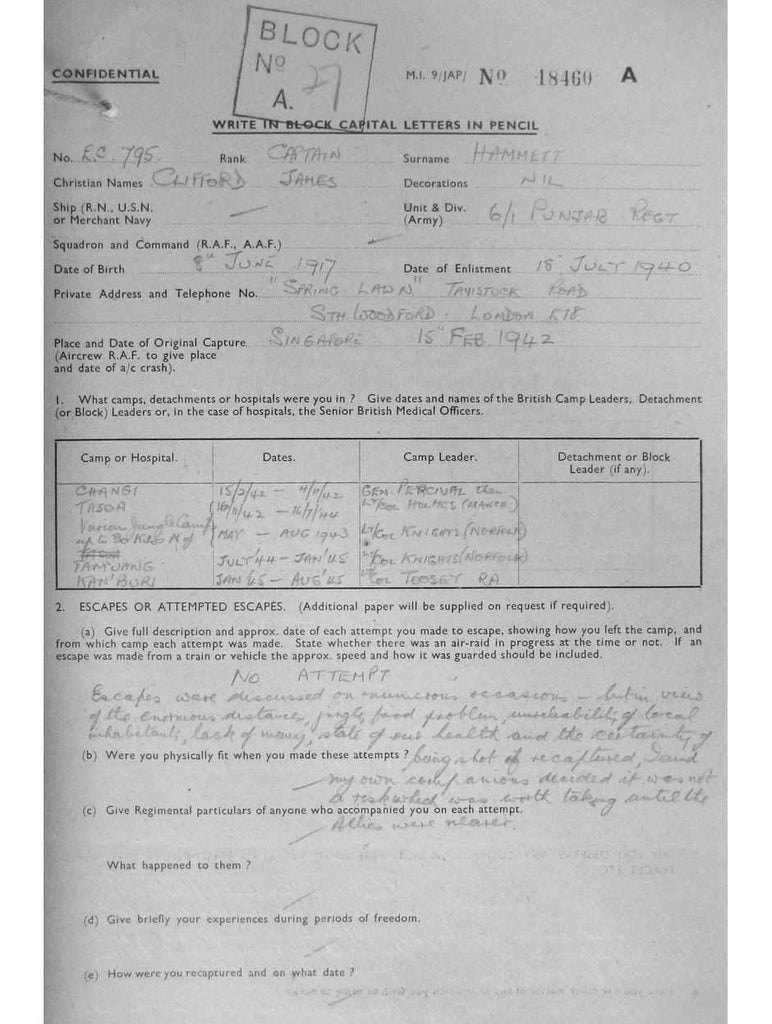 BLOCK
No 27
A.
CONFIDENTIAL
M.I. 9/JAP/ No 18460 A
WRITE IN BLOCK CAPITAL LETTERS IN PENCIL
No. E.C. 795. Rank CAPTAIN Surname HAMMETT
Christian Names CLIFFORD JAMES Decorations NIL
Ship (R.N., U.S.N. or Merchant Navy — Unit & Div. (Army) 6/1 PUNJAB REGT
Squadron and Command (R.A.F., A.A.F.)
Date of Birth 8th JUNE 1917 Date of Enlistment 18 JULY 1940
Private Address and Telephone No. "SPRING LAWN" TAVISTOCK ROAD
STH WOODFORD. LONDON E18
Place and Date of Original Capture SINGAPORE 15th FEB 1942
(Aircrew R.A.F. to give place
and date of a/c crash).
1. What camps, detachments or hospitals were you in ? Give dates and names of the British Camp Leaders, Detachment
(or Block) Leaders or, in the case of hospitals, the Senior British Medical Officers.
Camp or Hospital. Dates. Camp Leader. Detachment or Block Leader (if any).
CHANGI 15/2/42 – 4/11/42 GEN. PERCIVAL then
TASOA 10/11/42 – 16/7/44 Lt/Col HOLMES (MANCH.)
Various Jungle Camps
up to 30 Kilos N of MAY – AUG 1943 Lt/Col KNIGHTS (NORFOLK)
TAMUANG JULY '44 – JAN '45 Lt/Col KNIGHTS (NORFOLK)
KAN'BURI JAN '45 – AUG '45 Lt/Col TOOSEY RA
2. ESCAPES OR ATTEMPTED ESCAPES. (Additional paper will be supplied on request if required).
(a) Give full description and approx. date of each attempt you made to escape, showing how you left the camp, and
from which camp each attempt was made. State whether there was an air-raid in progress at the time or not. If an
escape was made from a train or vehicle the approx. speed and how it was guarded should be included.
NO ATTEMPT
Escapes were discussed on numerous occasions – but in view
of the enormous distance, jungle, food problem, unreliability of local
inhabitants, lack of money, state of our health and the certainty of
(b) Were you physically fit when you made these attempts ? being shot if recaptured, I and
my own companions decided it was not
a risk which was worth taking until the
(c) Give Regimental particulars of anyone who accompanied you on each attempt.
Allies were nearer.
What happened to them ?
(d) Give briefly your experiences during periods of freedom.
(e) How were you recaptured and on what date ?